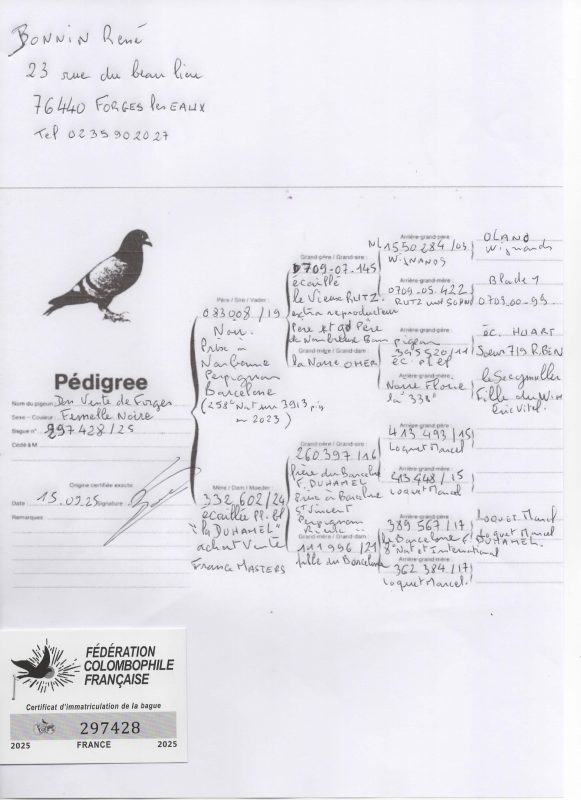 BONNIN René
23 rue du beau lieu
76440 FORGES les EAUX
Tel 0235902027
Pédigree
Nom du pigeon Don Vente de Forges
Sexe - Couleur Femelle Noire
Bague n° 297428/25
Cédé à M
Origine certifiée exacte
Date 15.09.25 Signature
Remarques
Père / Sire / Vader
083008/19
Noir
Prise à
Narbonne
Perpignan
Barcelone
(258e Nat sur 3913 pig
en 2023)
Mère / Dam / Moeder
332.602/24
écaillée Pl. bl
"la DUHAMEL"
achat Vente
FRANCE MASTERS
Grand-père / Grand-sire
0709-07-145
écaillé
le Vieux RUTZ
extra reproducteur
Père et gd Père
de Nombreux Bon pigeon
Grand-mère / Grand-dam
la Noire OMER
Grand-père / Grand-sire
260397/16
Frère du Barcelone
F. DUHAMEL
Prix à Barcelone
St Vincent
Perpignan
Grand-mère / Grand-dam
111996/21
fille du Barcelone
Arrière-grand-père
NL 1550284/03
WIGNANDS
Arrière-grand-mère
0709.05.422
RUTZ
Arrière-grand-père
395520/11
éc.
Arrière-grand-mère
Noire Florie
la "338"
Arrière-grand-père
413493/15
Loquet Marcel
Arrière-grand-mère
413448/15
Loquet Marcel
Arrière-grand-père
389567/17
le Barcelone F. DUHAMEL
8e Nat et International
Arrière-grand-mère
362384/17
Loquet Marcel
Wignands
0709.00-95
éc. HUART
Soeur 719 R. BEN
Fille du
Eric Vitel
Loquet Marcel
Loquet Marcel
FÉDÉRATION
COLOMBOPHILE
FRANÇAISE
Certificat d'immatriculation de la bague
297428
2025 FRANCE 2025